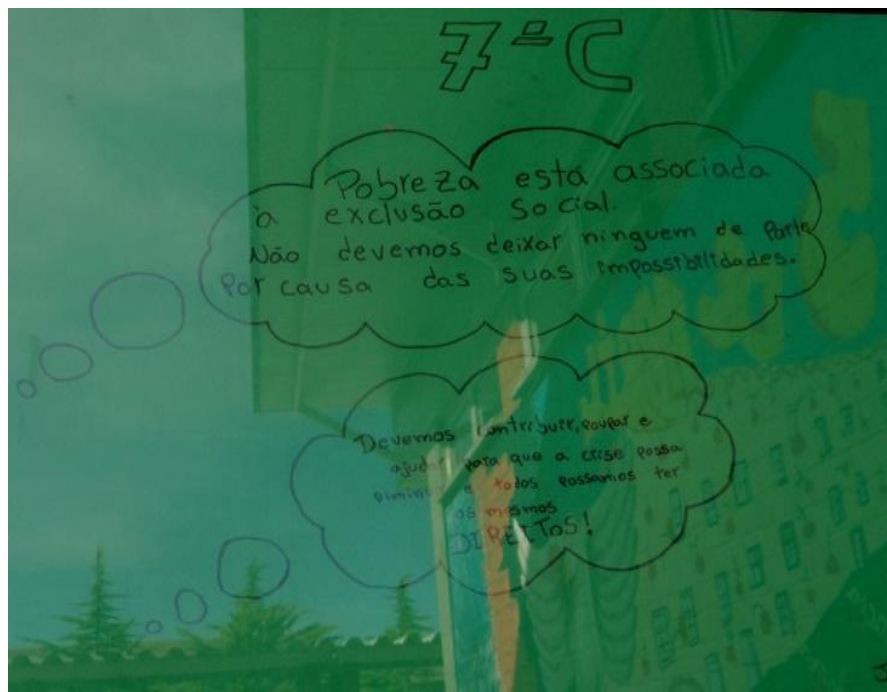 7ªC
Pobreza está associada
à exclusão social.
Não devemos deixar ninguem de parte
por causa das suas impossibilidades.
Devemos contribuir, poupar e
ajudar para que a crise possa
Diminuir e todos possamos ter
os mesmos
DIREITOS!